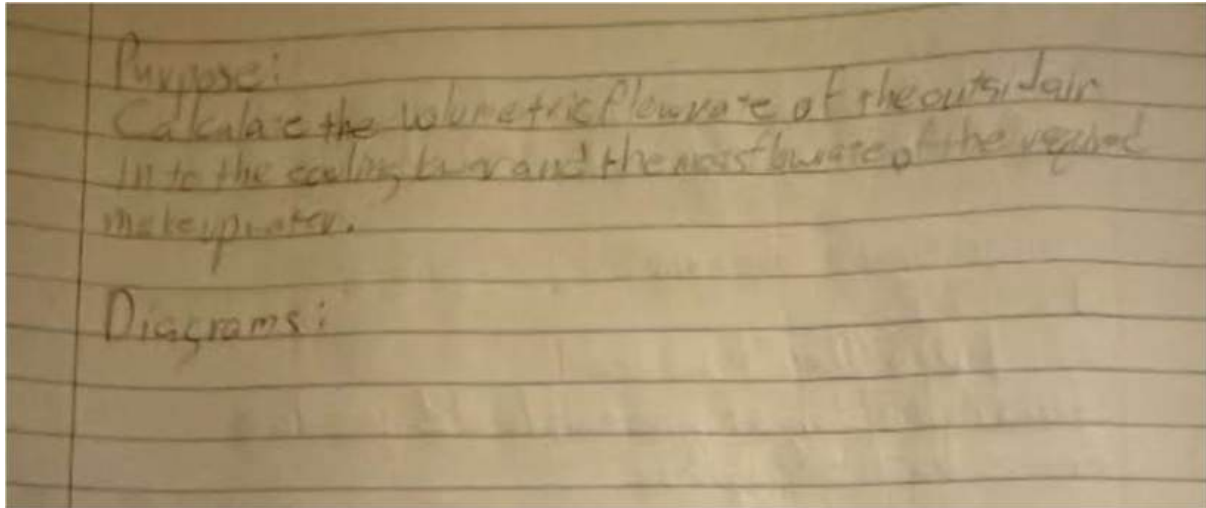 Purpose:
Calculate the volumetric flowrate of the outsid air
Into the cooling tower and the mass flowrate of the required
makeup water.
Diagrams: